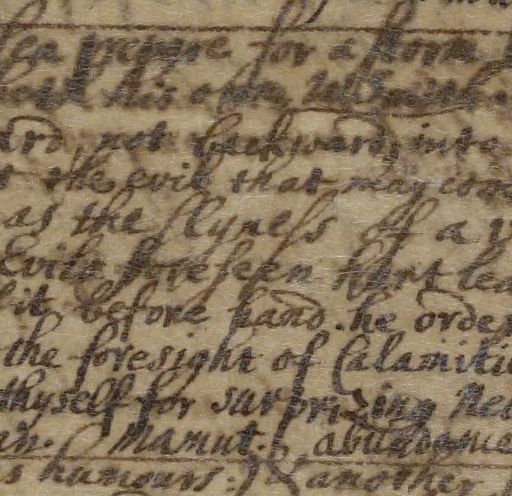 prepare for a storm
his
not backward, into
the evil that may com
as the slyness of a
Evils foreseen hurt lea
it before hand. he order
the foresight of Calamitie
thyself for surprizing
Mamut.
s humours: another